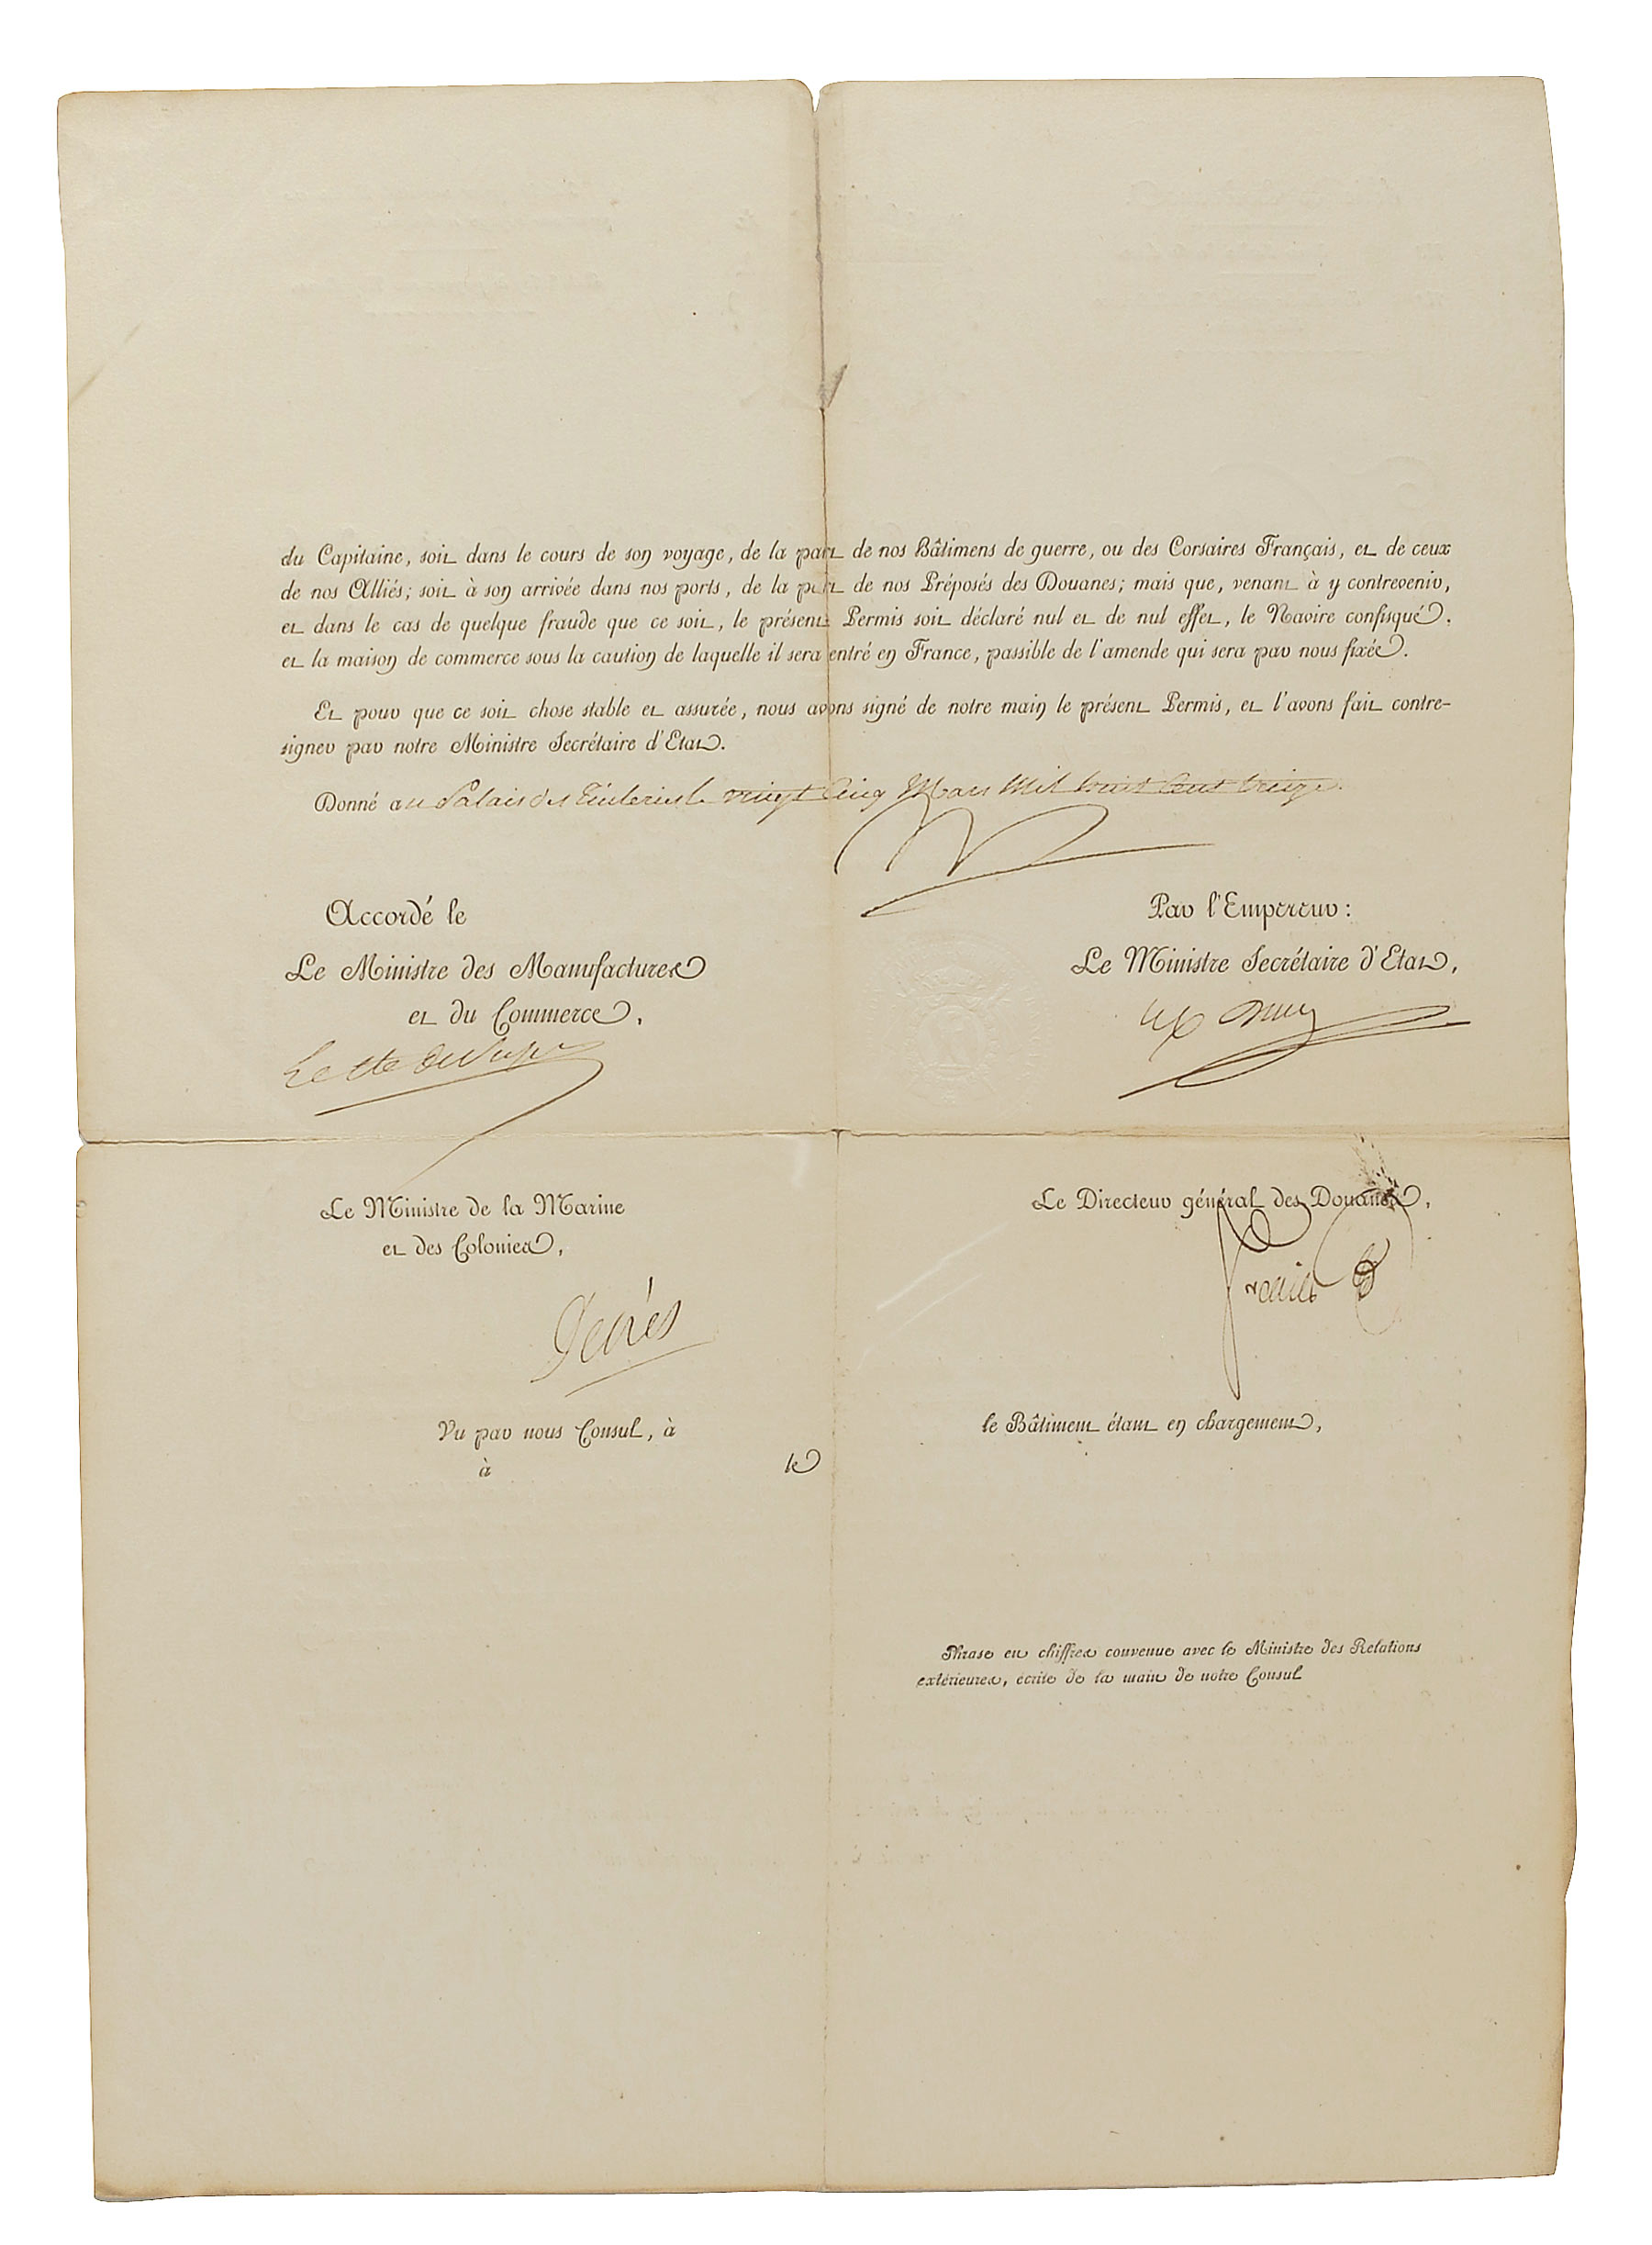 du Capitaine, soit dans le cours de son voyage, de la part de nos Bâtimens de guerre, ou des Corsaires Français, et de ceux
de nos Alliés; soit à son arrivée dans nos ports, de la part de nos Préposés des Douanes; mais que, venant à y contrevenir,
et dans le cas de quelque fraude que ce soit, le présent Permis soit déclaré nul et de nul effet, le Navire confisqué,
et la maison de commerce sous la caution de laquelle il sera entré en France, passible de l'amende qui sera par nous fixée.
Et pour que ce soit chose stable et assurée, nous avons signé de notre main le présent Permis, et l'avons fait contre-
signer par notre Ministre Secrétaire d'Etat.
Donné au Palais des Tuileries le vingt Cinq Mars Mil huit Cent treize.
Accordé le
Par l'Empereur:
Le Ministre des Manufactures
et du Commerce,
Le Ministre Secrétaire d'Etat,
Le Cte de
Le Ministre de la Marine
et des Colonies,
Le Directeur général des Douanes,
Decrès
Vu par nous Consul, à
le Bâtiment étant en chargement,
à le
Phrase en chiffres convenue avec le Ministre des Relations
extérieures, écrite de la main de notre Consul